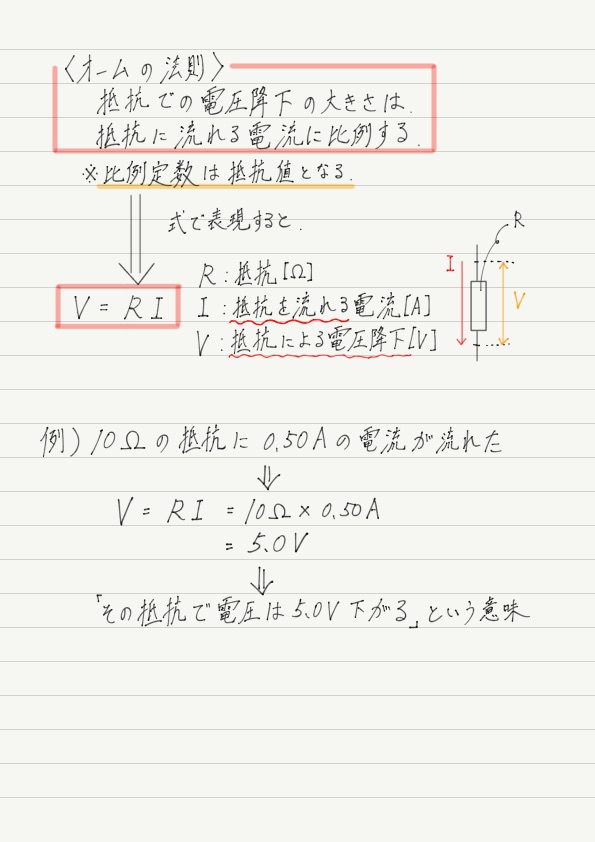 〈オームの法則〉
抵抗での電圧降下の大きさは、
抵抗に流れる電流に比例する。
※比例定数は抵抗値となる。
式で表現すると、
R
R：抵抗[Ω]
I
V = RI
I：抵抗を流れる電流[A]
V
V：抵抗による電圧降下[V]
例）10Ωの抵抗に0.50Aの電流が流れた
⇓
V = RI = 10Ω × 0.50A
= 5.0V
⇓
「その抵抗で電圧は5.0V下がる」という意味